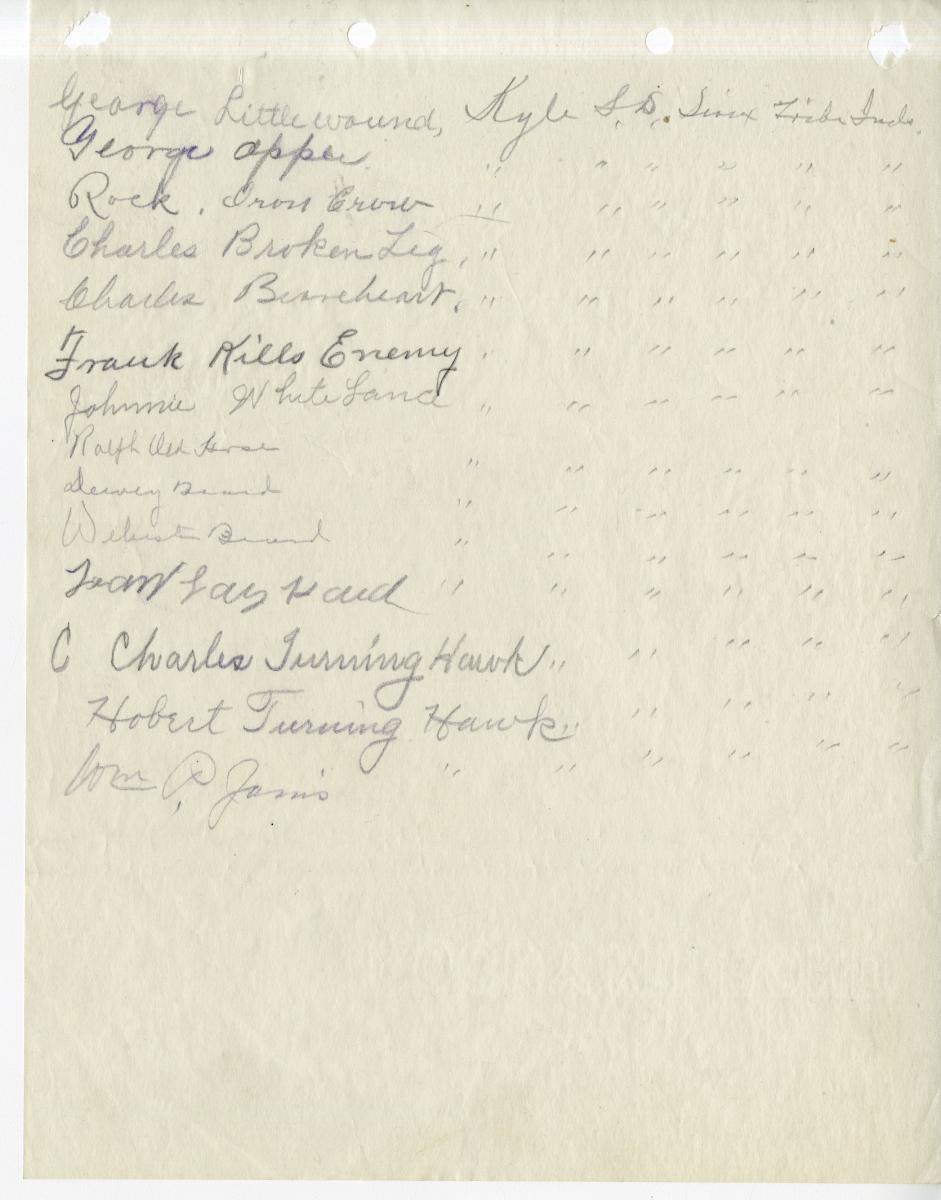 George Littlewound, Kyle S.D., Sioux Tribe Inds.
George apple " " " " " "
Rock. Iron Crow " " " " " "
Charles Broken Leg, " " " " " "
Charles Braveheart, " " " " " "
Frank Kills Enemy " " " " " "
Johnnie White Lance " " " " " "
Ralph Old Horse " " " " " "
Dewey Beard " " " " " "
Webster Beard " " " " " "
" " " " " "
C Charles Turning Hawk " " " " "
Hobert Turning Hawk " " " " "
Wm P. Janis " " " " " "